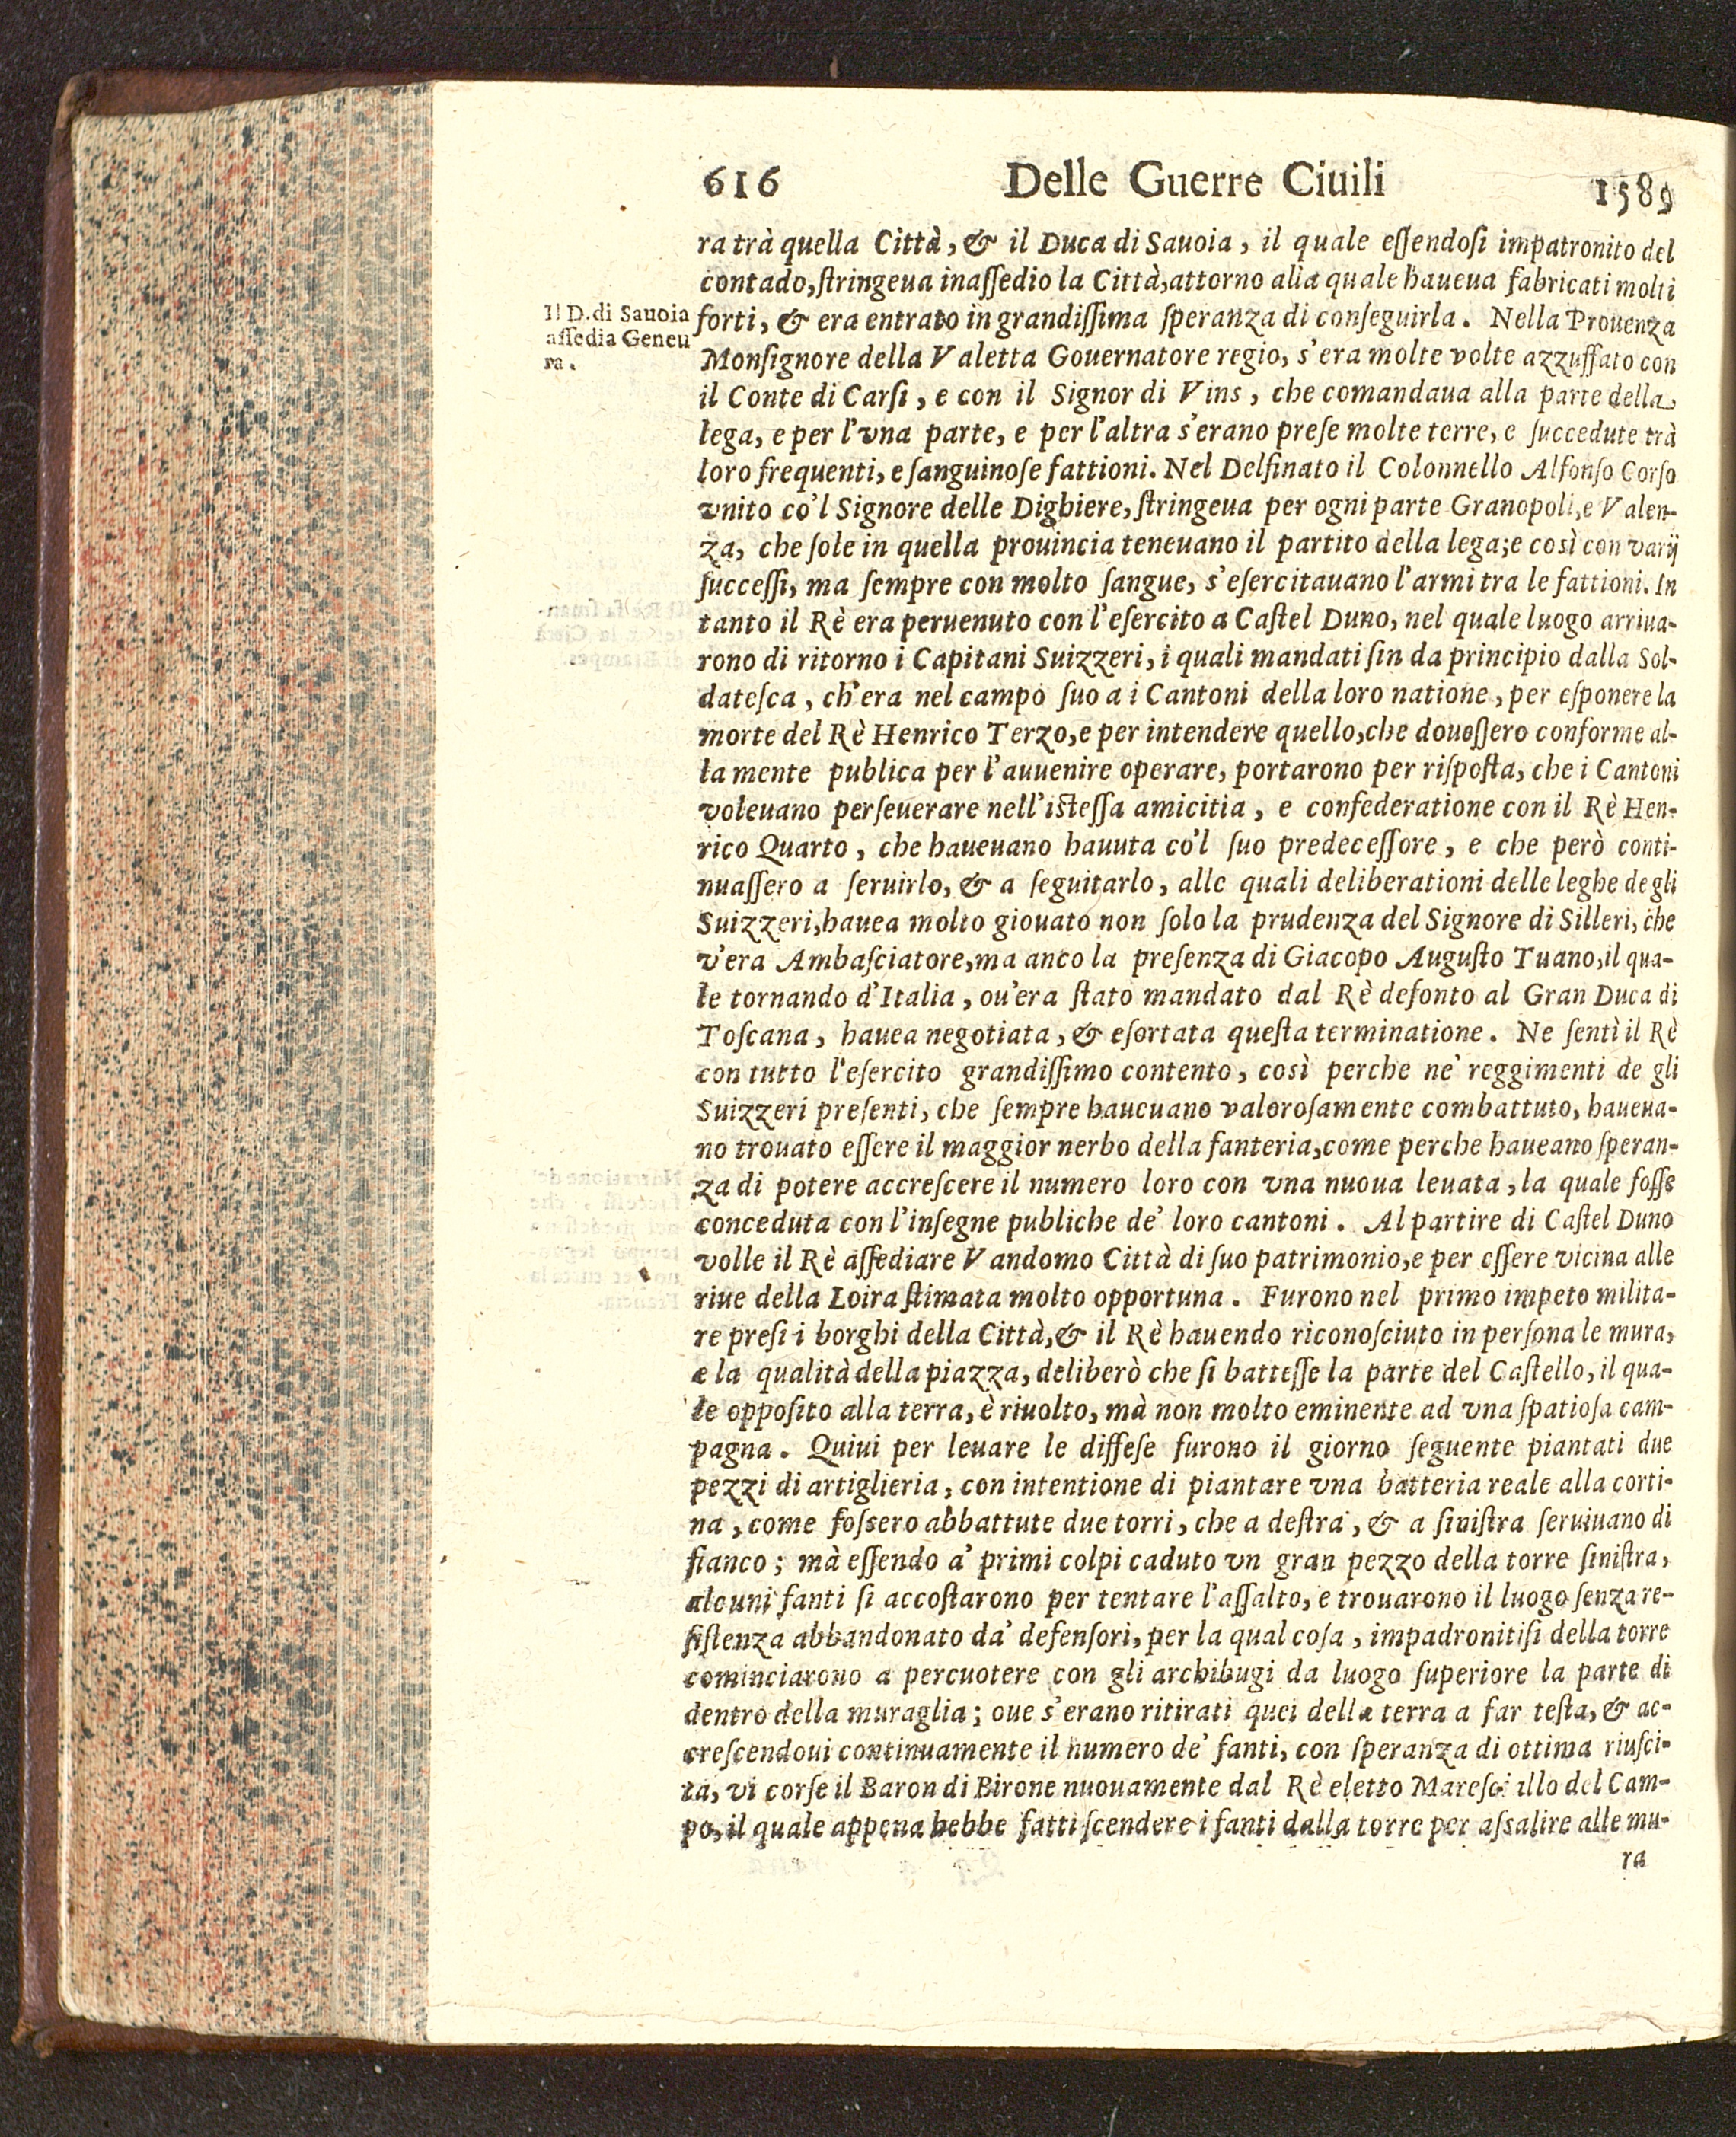 616 Delle Guerre Ciuili 1589
ra trà quella Città, & il Duca di Sauoia, il quale eſſendoſi impatronito del
contado, ſtringeua inaſſedio la Città, attorno alla quale haueua fabricati molti
Il D. di Sauoia
aſſedia Geneu
ra.
forti, & era entrato in grandiſſima ſperanza di conſeguirla. Nella Prouenza
Monſignore della Valetta Gouernatore regio, s'era molte volte azzuffato con
il Conte di Carſi, e con il Signor di Vins, che comandaua alla parte della
lega, e per l'vna parte, e per l'altra s'erano preſe molte terre, e ſuccedute trà
loro frequenti, e ſanguinoſe fattioni. Nel Delfinato il Colonnello Alfonſo Corſo
vnito co'l Signore delle Dighiere, ſtringeua per ogni parte Granopoli, e Valen-
za, che ſole in quella prouincia teneuano il partito della lega; e così con varij
ſucceſſi, ma ſempre con molto ſangue, s'eſercitauano l'armi tra le fattioni. In
tanto il Rè era peruenuto con l'eſercito a Caſtel Duno, nel quale luogo arriua-
rono di ritorno i Capitani Suizzeri, i quali mandati ſin da principio dalla Sol-
dateſca, ch'era nel campo ſuo a i Cantoni della loro natione, per eſponere la
morte del Rè Henrico Terzo, e per intendere quello, che doueſſero conforme al-
la mente publica per l'auuenire operare, portarono per riſpoſta, che i Cantoni
voleuano perſeuerare nell'iſteſſa amicitia, e confederatione con il Rè Hen-
rico Quarto, che haueuano hauuta co'l ſuo predeceſſore, e che però conti-
nuaſſero a ſeruirlo, & a ſeguitarlo, alle quali deliberationi delle leghe de gli
Suizzeri, hauea molto giouato non ſolo la prudenza del Signore di Silleri, che
v'era Ambaſciatore, ma anco la preſenza di Giacopo Auguſto Tuano, il qua-
le tornando d'Italia, ou'era ſtato mandato dal Rè defonto al Gran Duca di
Toſcana, hauea negotiata, & eſortata queſta terminatione. Ne ſentì il Rè
con tutto l'eſercito grandiſſimo contento, così perche ne' reggimenti de gli
Suizzeri preſenti, che ſempre haueuano valoroſamente combattuto, haueua-
no trouato eſſere il maggior nerbo della fanteria, come perche haueano ſperan-
za di potere accreſcere il numero loro con vna nuoua leuata, la quale foſſe
conceduta con l'inſegne publiche de' loro cantoni. Al partire di Caſtel Duno
volle il Rè aſſediare Vandomo Città di ſuo patrimonio, e per eſſere vicina alle
riue della Loira ſtimata molto opportuna. Furono nel primo impeto milita-
re preſi i borghi della Città, & il Rè hauendo riconoſciuto in perſona le mura,
e la qualità della piazza, deliberò che ſi batteſſe la parte del Caſtello, il qua-
le oppoſito alla terra, è riuolto, mà non molto eminente ad vna ſpatioſa cam-
pagna. Quiui per leuare le diffeſe furono il giorno ſeguente piantati due
pezzi di artiglieria, con intentione di piantare vna batteria reale alla corti-
na, come foſsero abbattute due torri, che a deſtra, & a ſiniſtra ſeruiuano di
fianco; mà eſſendo a' primi colpi caduto vn gran pezzo della torre ſiniſtra,
alcuni fanti ſi accoſtarono per tentare l'aſſalto, e trouarono il luogo ſenza re-
ſiſtenza abbandonato da' defenſori, per la qual coſa, impadronitiſi della torre
cominciarono a percuotere con gli archibugi da luogo ſuperiore la parte di
dentro della muraglia; oue s'erano ritirati quei della terra a far teſta, & ac-
creſcendoui continuamente il numero de' fanti, con ſperanza di ottima riuſci-
ta, vi corſe il Baron di Birone nuouamente dal Rè eletto Mareſciallo del Cam-
po, il quale appena hebbe fatti ſcendere i fanti dalla torre per aſsalire alle mu-
ra